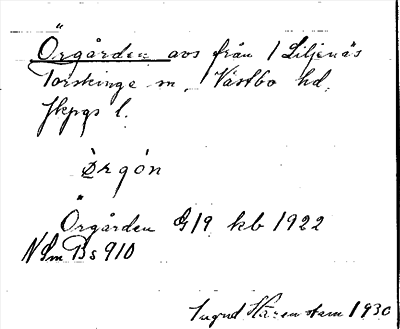 Örgården avs från 1 Liljenäs
Torskinge sn, Västbo hd,
Jkpgs l.
Örgården G19 kb 1922
NSm Bs 910
Ingrid 1930